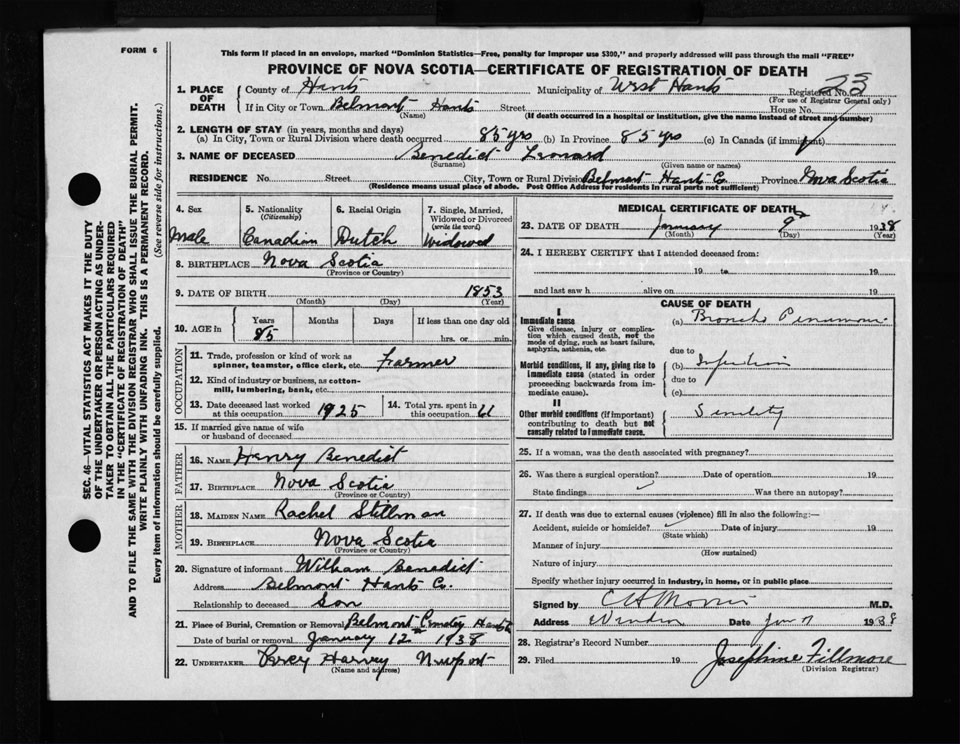 FORM 6
This form if placed in an envelope, marked "Dominion Statistics—Free, penalty for improper use $300," and properly addressed will pass through the mail "FREE"
PROVINCE OF NOVA SCOTIA—CERTIFICATE OF REGISTRATION OF DEATH
SEC. 46—VITAL STATISTICS ACT MAKES IT THE DUTY
OF THE UNDERTAKER OR PERSON ACTING AS UNDER-
TAKER TO OBTAIN ALL THE PARTICULARS REQUIRED
IN THE "CERTIFICATE OF REGISTRATION OF DEATH"
AND TO FILE THE SAME WITH THE DIVISION REGISTRAR WHO SHALL ISSUE THE BURIAL PERMIT.
WRITE PLAINLY WITH UNFADING INK. THIS IS A PERMANENT RECORD.
Every item of Information should be carefully supplied. (See reverse side for instructions.)
1. PLACE OF DEATH
County of Hants Municipality of West Hants Registered No. 23
(For use of Registrar General only)
If in City or Town Belmont Hants Street House No.
(Name) (If death occurred in a hospital or institution, give the name instead of street and number)
2. LENGTH OF STAY (in years, months and days)
(a) In City, Town or Rural Division where death occurred 85 yrs (b) In Province 85 yrs (c) In Canada (if immigrant)
3. NAME OF DECEASED Benedict Leonard
(Surname) (Given name or names)
RESIDENCE No. Street City, Town or Rural Division Belmont Hants Co Province Nova Scotia
(Residence means usual place of abode. Post Office Address for residents in rural parts not sufficient)
4. Sex 5. Nationality (Citizenship) 6. Racial Origin 7. Single, Married, Widowed or Divorced (write the word)
Male Canadian Dutch Widowed
8. BIRTHPLACE Nova Scotia
(Province or Country)
9. DATE OF BIRTH 1853
(Month) (Day) (Year)
10. AGE in Years Months Days If less than one day old
85 hrs. or min.
OCCUPATION
11. Trade, profession or kind of work as spinner, teamster, office clerk, etc. Farmer
12. Kind of industry or business, as cotton-mill, lumbering, bank, etc.
13. Date deceased last worked at this occupation 1925 14. Total yrs. spent in this occupation 61
15. If married give name of wife or husband of deceased
FATHER
16. NAME Henry Benedict
17. BIRTHPLACE Nova Scotia
(Province or Country)
MOTHER
18. MAIDEN NAME Rachel Stillman
19. BIRTHPLACE Nova Scotia
(Province or Country)
20. Signature of informant William Benedict
Address Belmont Hants Co.
Relationship to deceased Son
21. Place of Burial, Cremation or Removal Belmont Cemetery Hants Co
Date of burial or removal January 12th 1938
22. UNDERTAKER Percy Harvey Newport
(Name and address)
MEDICAL CERTIFICATE OF DEATH
23. DATE OF DEATH January 9 1938
(Month) (Day) (Year)
24. I HEREBY CERTIFY that I attended deceased from:
19 to 19
and last saw h alive on 19
CAUSE OF DEATH
I
Immediate cause (a) Broncho Pneumonia
Give disease, injury or complica-
tion which caused death, not the
mode of dying, such as heart failure,
asphyxia, asthenia, etc.
due to
Morbid conditions, if any, giving rise to (b)
immediate cause (stated in order due to
proceeding backwards from im-
mediate cause). (c)
II
Other morbid conditions (if important) Senility
contributing to death but not
causally related to immediate cause.
25. If a woman, was the death associated with pregnancy?
26. Was there a surgical operation? Date of operation 19
State findings Was there an autopsy?
27. If death was due to external causes (violence) fill in also the following:—
Accident, suicide or homicide? Date of injury 19
(State which)
Manner of injury
(How sustained)
Nature of injury
Specify whether injury occurred in industry, in home, or in public place
Signed by C H Morris M.D.
Address Windsor Date Jan 1938
28. Registrar's Record Number
29. Filed 19 Josephine Fillmore
(Division Registrar)